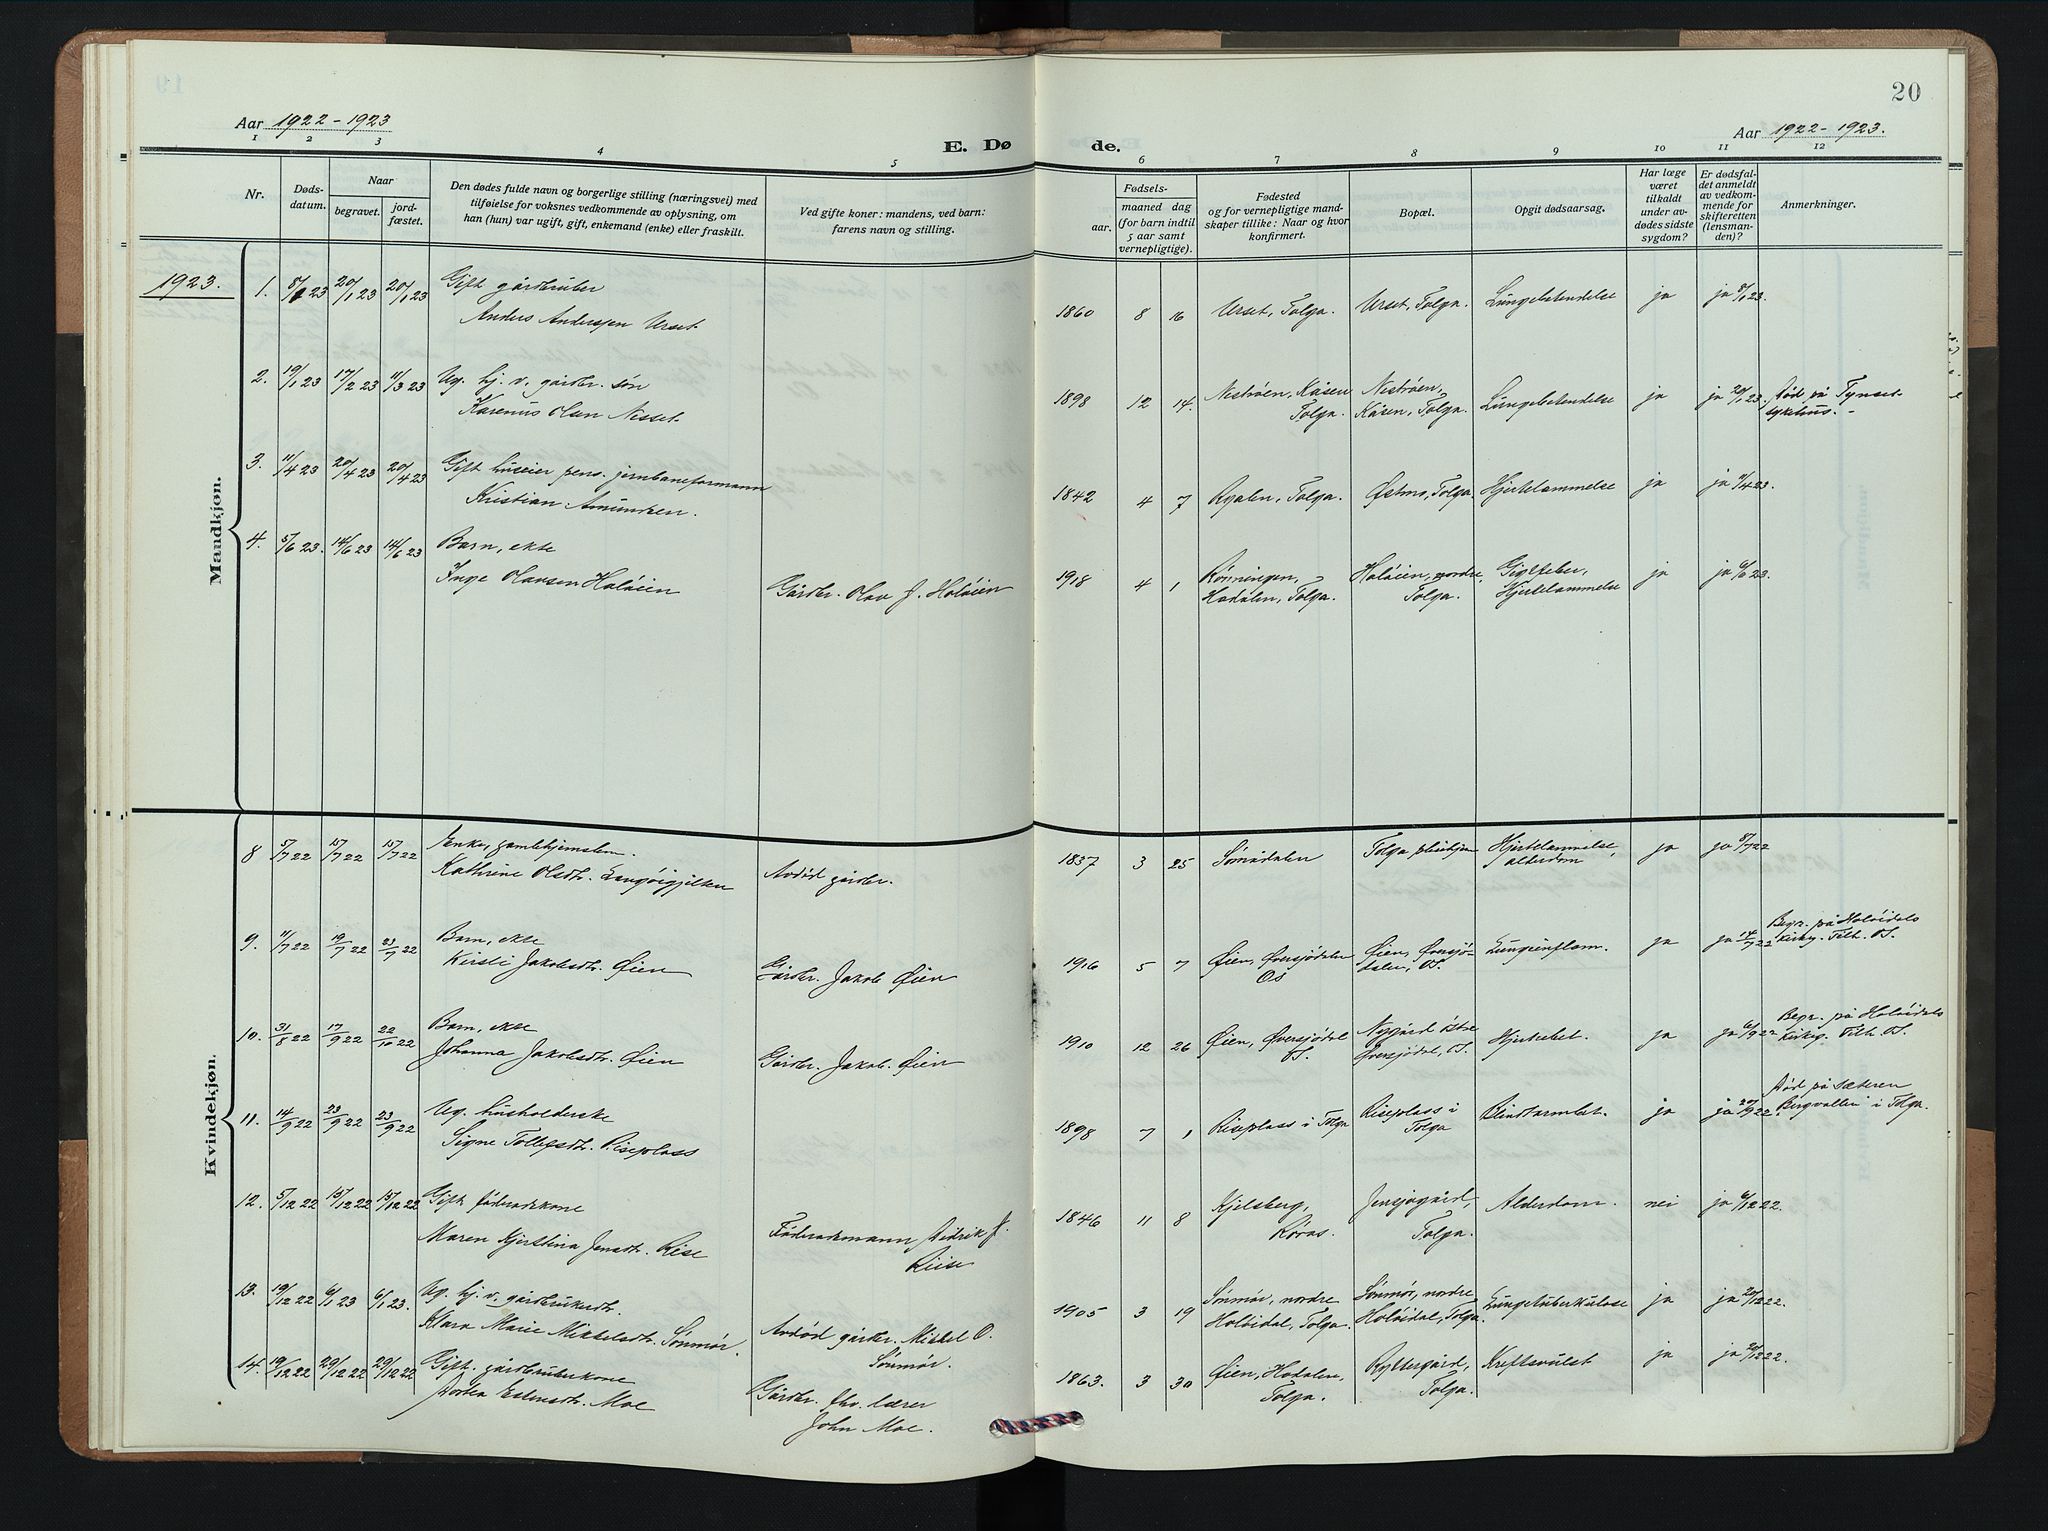 19
20
Aar 1922-1923
E. Dø
de.
Aar 1922-1923.
1 2 3 4 5 6 7 8 9 10 11 12
Nr.
Døds-
datum.
Naar
begravet.
jord-
fæstet.
Den dødes fulde navn og borgerlige stilling (næringsvei) med
tilføielse for voksnes vedkommende av oplysning, om
han (hun) var ugift, gift, enkemand (enke) eller fraskilt.
Ved gifte koner: mandens, ved barn:
farens navn og stilling.
Fødsels-
aar.
maaned dag
(for barn indtil
5 aar samt
vernepligtige).
Fødested
og for vernepligtige mand-
skaper tillike: Naar og hvor
konfirmert.
Bopæl.
Opgit dødsaarsag.
Har læge
været
tilkaldt
under av-
dødes sidste
sygdom?
Er dødsfal-
det anmeldt
av vedkom-
mende for
skifteretten
(lensman-
den)?
Anmerkninger.
Mandkjøn.
1923.
1. 8/1 23 20/1 23 20/1 23 Gift gårdbruker
Anders Anderssen Urset
1860 8 16 Urset, Tolga. Urset, Tolga. Lungebetendelse ja ja 8/1 23.
2. 19/1 23 17/2 23 11/3 23 Ug. hj. v. gårdbr. søn
Karenus Olsen Nesset
1898 12 14. Nestrøen, Kåsen Tolga. Nestrøen, Kåsen, Tolga. Lungebetendelse ja ja 20/1 23. Død på Tynset
sykehus. -
3. 11/4 23 20/4 23 20/4 23 Gift huseier pens. jernbaneformann
Kristian Amundsen.
1842 4 7 Tolga. Østmo, Tolga. Hjertelammelse ja ja 11/4 23.
4. 5/6 23. 14/6 23 14/6 23 Barn, ekte
Inge Olavsen Holøien
Gårdbr. Olav J. Holøien
1918 4 1 Rønningen, Hodalen, Tolga. Holøien, nordre, Tolga. Gigtfeber, Hjertelammelse ja ja 6/6 23.
Kvindekjøn.
8 5/7 22 15/7 22 15/7 22 Enke, gamlehjemslem.
Kathrine Olsdtr. Langøigjelten
Avdød gårdbr.
1837 3 25 Sømådalen Tolga pleiehjem Hjertelammelse, alderdom ja ja 8/7 22
9. 11/7 22 19/7 22 23/7 22 Barn, ekte
Kirsti Jakobsdtr. Øien
Gårdbr. Jakob Øien
1916 5 7 Øien, Øversjødalen Os Øien, Øversjø-
dalen, OS. Lungeinflam. ja ja 14/7 22 Begr. på Holøidals
kirkeg. Tilh. OS.
10. 31/8 22 17/9 22 22/10 22 Barn, ekte
Johanna Jakobsdtr. Øien
Gårdbr. Jakob Øien
1910 12 26 Øien, Øversjødal OS. Nygård østre Øversjødal, OS. ja ja 6/9 22 Begr. på Holøidals
kirkeg. Tilh. OS.
11. 14/9 22 23/9 22 23/9 22 Ug. husholderske
Signe Tollefsdtr. Riseplass
1898 7 1 Riseplass i Tolga Riseplass i Tolga Blindtarmbet. ja ja 20/9 22. Død på sæteren
Bergvallen i Tolga.
12. 5/12 22 15/12 22 15/12 22 Gift føderådskone
Maren Kjerstina Jensdtr. Rise
Føderådsmann Didrik J.
Riise
1846 11 8 Kjelsberg, Røros. Jensjogård, Tolga. Alderdom. nei ja 6/12 22.
13. 19/12 22 6/1 23 6/1 23. Ug. hj. v. gårdbrukerdtr.
Klara Marie Mikkelsdtr. Sønmør.
Avdød gårdbr. Mikkel O.
Sønmør.
1905 3 19 Sønmør, nordre Holøidal, Tolga Sønmør, nordre Holøidal, Tolga. Lungetuberkulose ja ja 20/12 22.
14. 19/12 22 29/12 22 29/12 22 Gift. gårdbrukerkone
Dortea Estensdtr. Moe
Gårdbr. fhv. lærer
John Moe.
1863. 3 30 Øien, Hodalen, Tolga. Ryttergård, Tolga. Kreftsvulst ja ja 20/12 22.